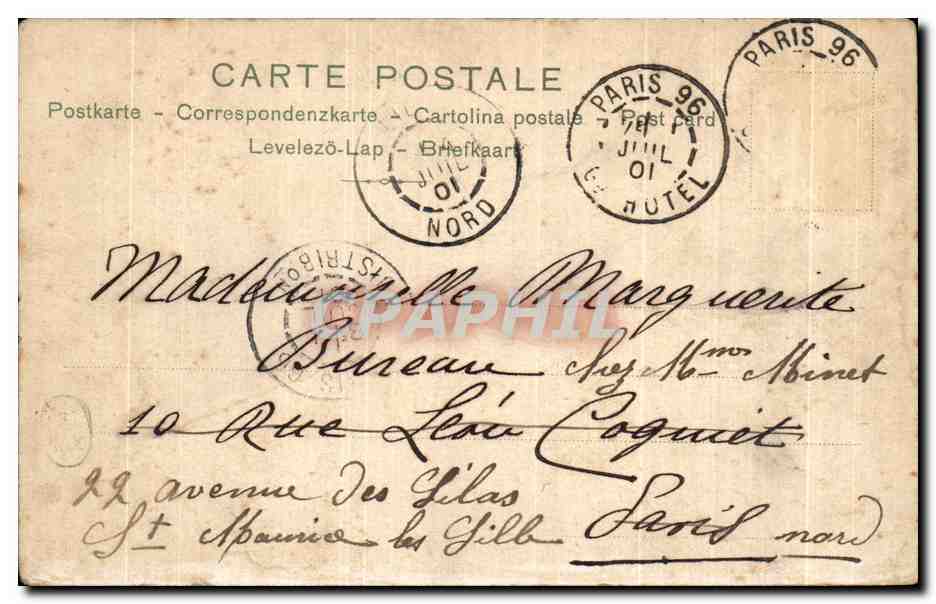 CARTE POSTALE
Postkarte - Correspondenzkarte - Cartolina postale - Post card
Levelezö-Lap - Briefkaart
PARIS 96
PARIS 96
JUIL
01
HOTEL
JUIL
01
NORD
DISTRIBON
CPAPHIL
Mademoiselle Marguerite
Bureau chez Mme Minet
10 Rue Léon Cogniet
22 avenue des Lilas
St Maurice les Lille
Paris nord